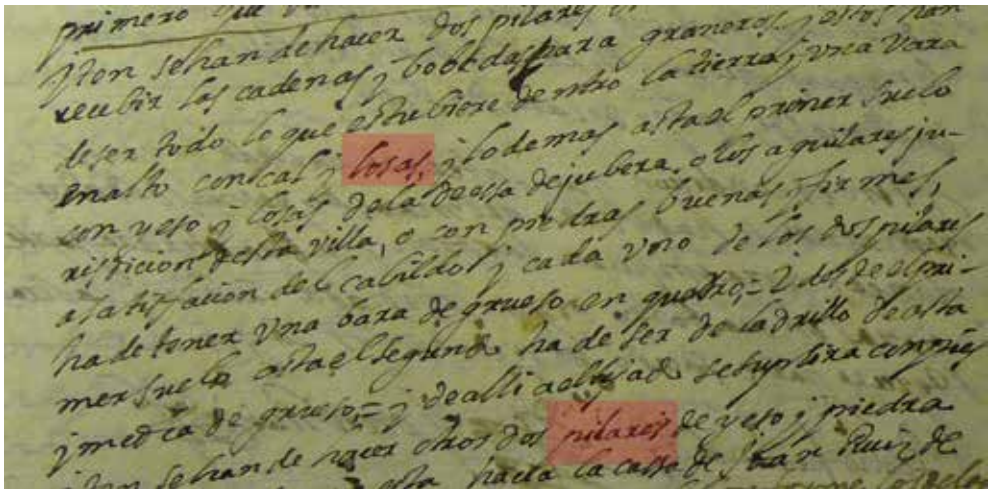 primero que
yten se han de hacer dos pilares
recibir las cadenas y bobedas para graneros, y estos han
de ser todo lo que estubiere dentro la tierra, y una vara
en alto con cal y losas, y lo demas asta el primer suelo
con yeso y losas de la de ossa de jubera, o los aguilares ju-
risdicion desta villa, o con piedras buenas, firmes,
a satisfacion del cabildo, y cada vno de los dos pilares
ha de tener vna bara de grueso en quadro,= y desde el pri-
mer suelo asta el segundo ha de ser de ladrillo de asta
y media de grueso,= y de alli al texado se suplira con pies
yten se han de hacer otros dos pilares de yeso y piedra
hacia la casa de Juan Ruiz de